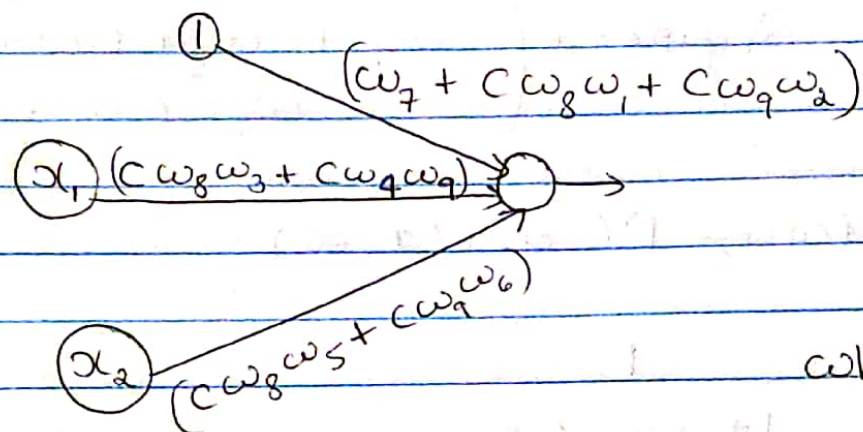 1
(ω₇ + Cω₈ω₁ + Cω₉ω₂)
x₁ (Cω₈ω₃ + Cω₄ω₉)
x₂ (Cω₈ω₅ + Cω₉ω₆)